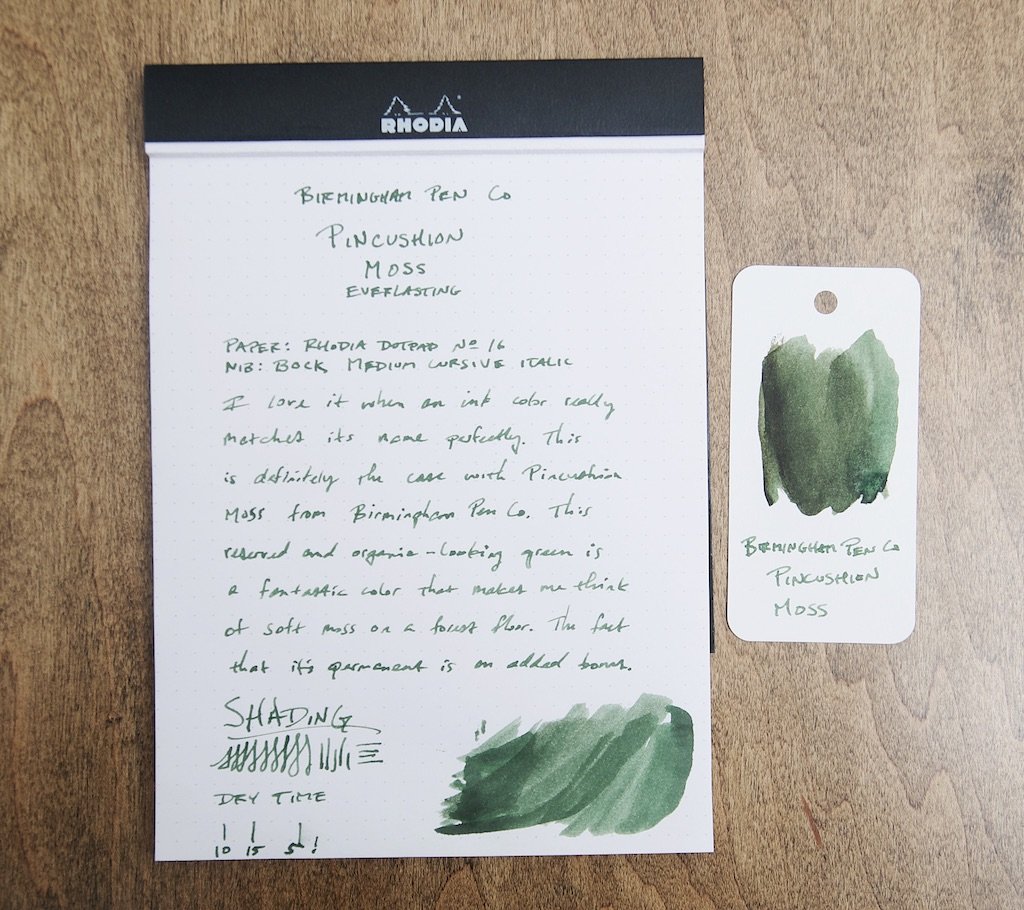 RHODIA
BIRMINGHAM PEN CO
PINCUSHION
MOSS
EVERLASTING
PAPER: RHODIA DOTPAD No 16
NIB: BOCK MEDIUM CURSIVE ITALIC
I love it when an ink color really
matches its name perfectly. This
is definitely the case with Pincushion
Moss from Birmingham Pen Co. This
reserved and organic-looking green is
a fantastic color that makes me think
of soft moss on a forest floor. The fact
that it's permanent is an added bonus.
SHADING
DRY TIME
10 15 5!
BIRMINGHAM PEN CO
PINCUSHION
MOSS